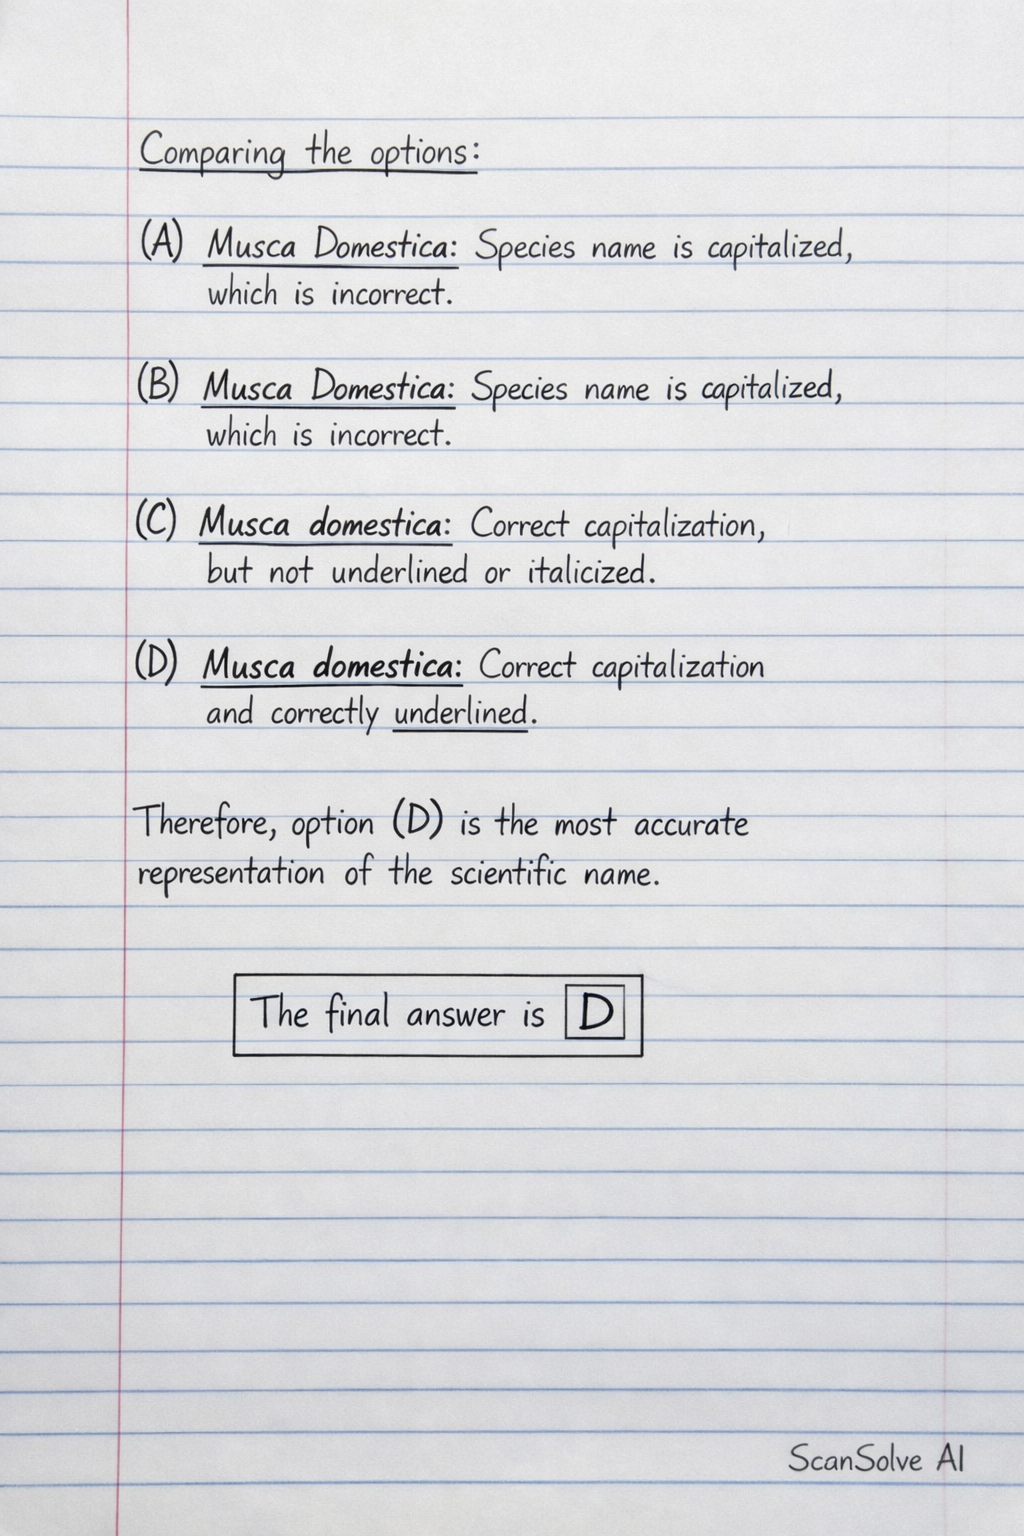 Comparing the options:
(A) Musca Domestica: Species name is capitalized,
which is incorrect.
(B) Musca Domestica: Species name is capitalized,
which is incorrect.
(C) Musca domestica: Correct capitalization,
but not underlined or italicized.
(D) Musca domestica: Correct capitalization
and correctly underlined.
Therefore, option (D) is the most accurate
representation of the scientific name.
The final answer is D
ScanSolve AI